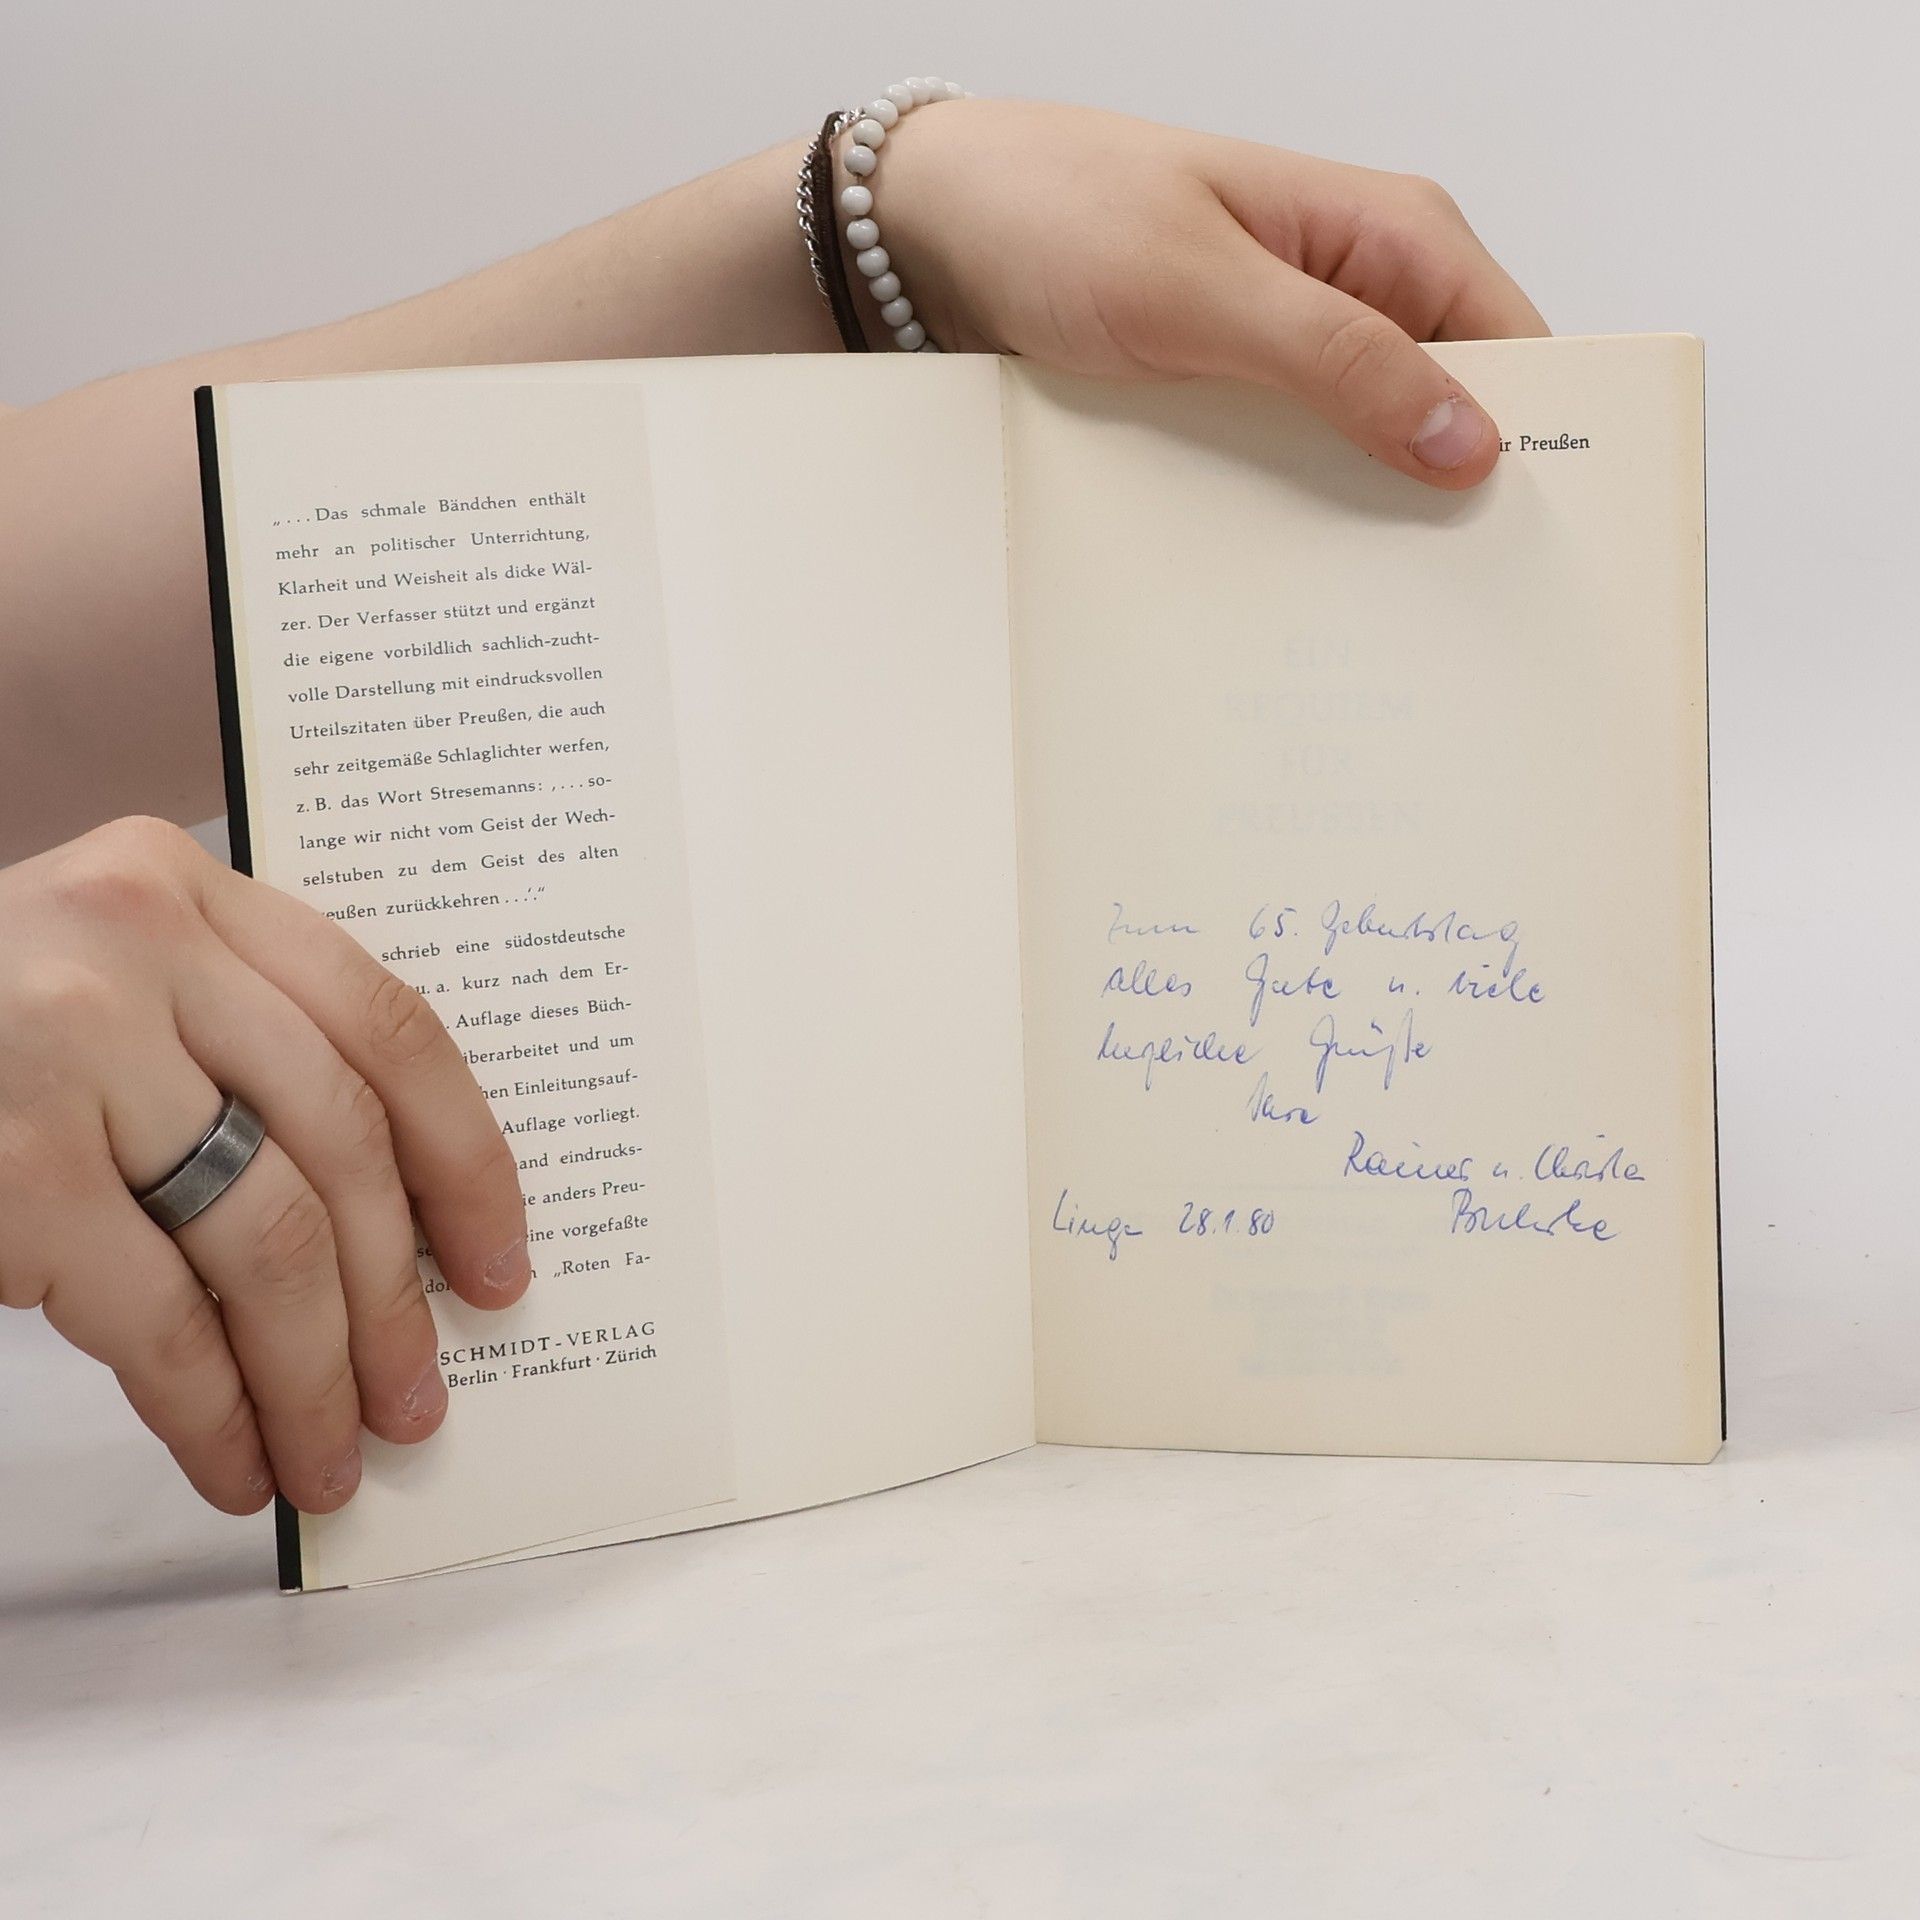 „ . . . Das schmale Bändchen enthält
mehr an politischer Unterrichtung,
Klarheit und Weisheit als dicke Wäl-
zer. Der Verfasser stützt und ergänzt
die eigene vorbildlich sachlich-zucht-
volle Darstellung mit eindrucksvollen
Urteilszitaten über Preußen, die auch
sehr zeitgemäße Schlaglichter werfen,
z. B. das Wort Stresemanns: ‚ . . . so-
lange wir nicht vom Geist der Wech-
selstuben zu dem Geist des alten
eußen zurückkehren . . .‘.“
schrieb eine südostdeutsche
u. a. kurz nach dem Er-
. Auflage dieses Büch-
berarbeitet und um
hen Einleitungsauf-
Auflage vorliegt.
and eindrucks-
ie anders Preu-
eine vorgefaßte
„Roten Fa-
SCHMIDT-VERLAG
Berlin · Frankfurt · Zürich
ir Preußen
EIN
REQUIEM
FÜR
PREUSSEN
Zum 65. Geburtstag
alles Gute u. viele
herzliche Grüße
Rainer u. Christa
28.1.80